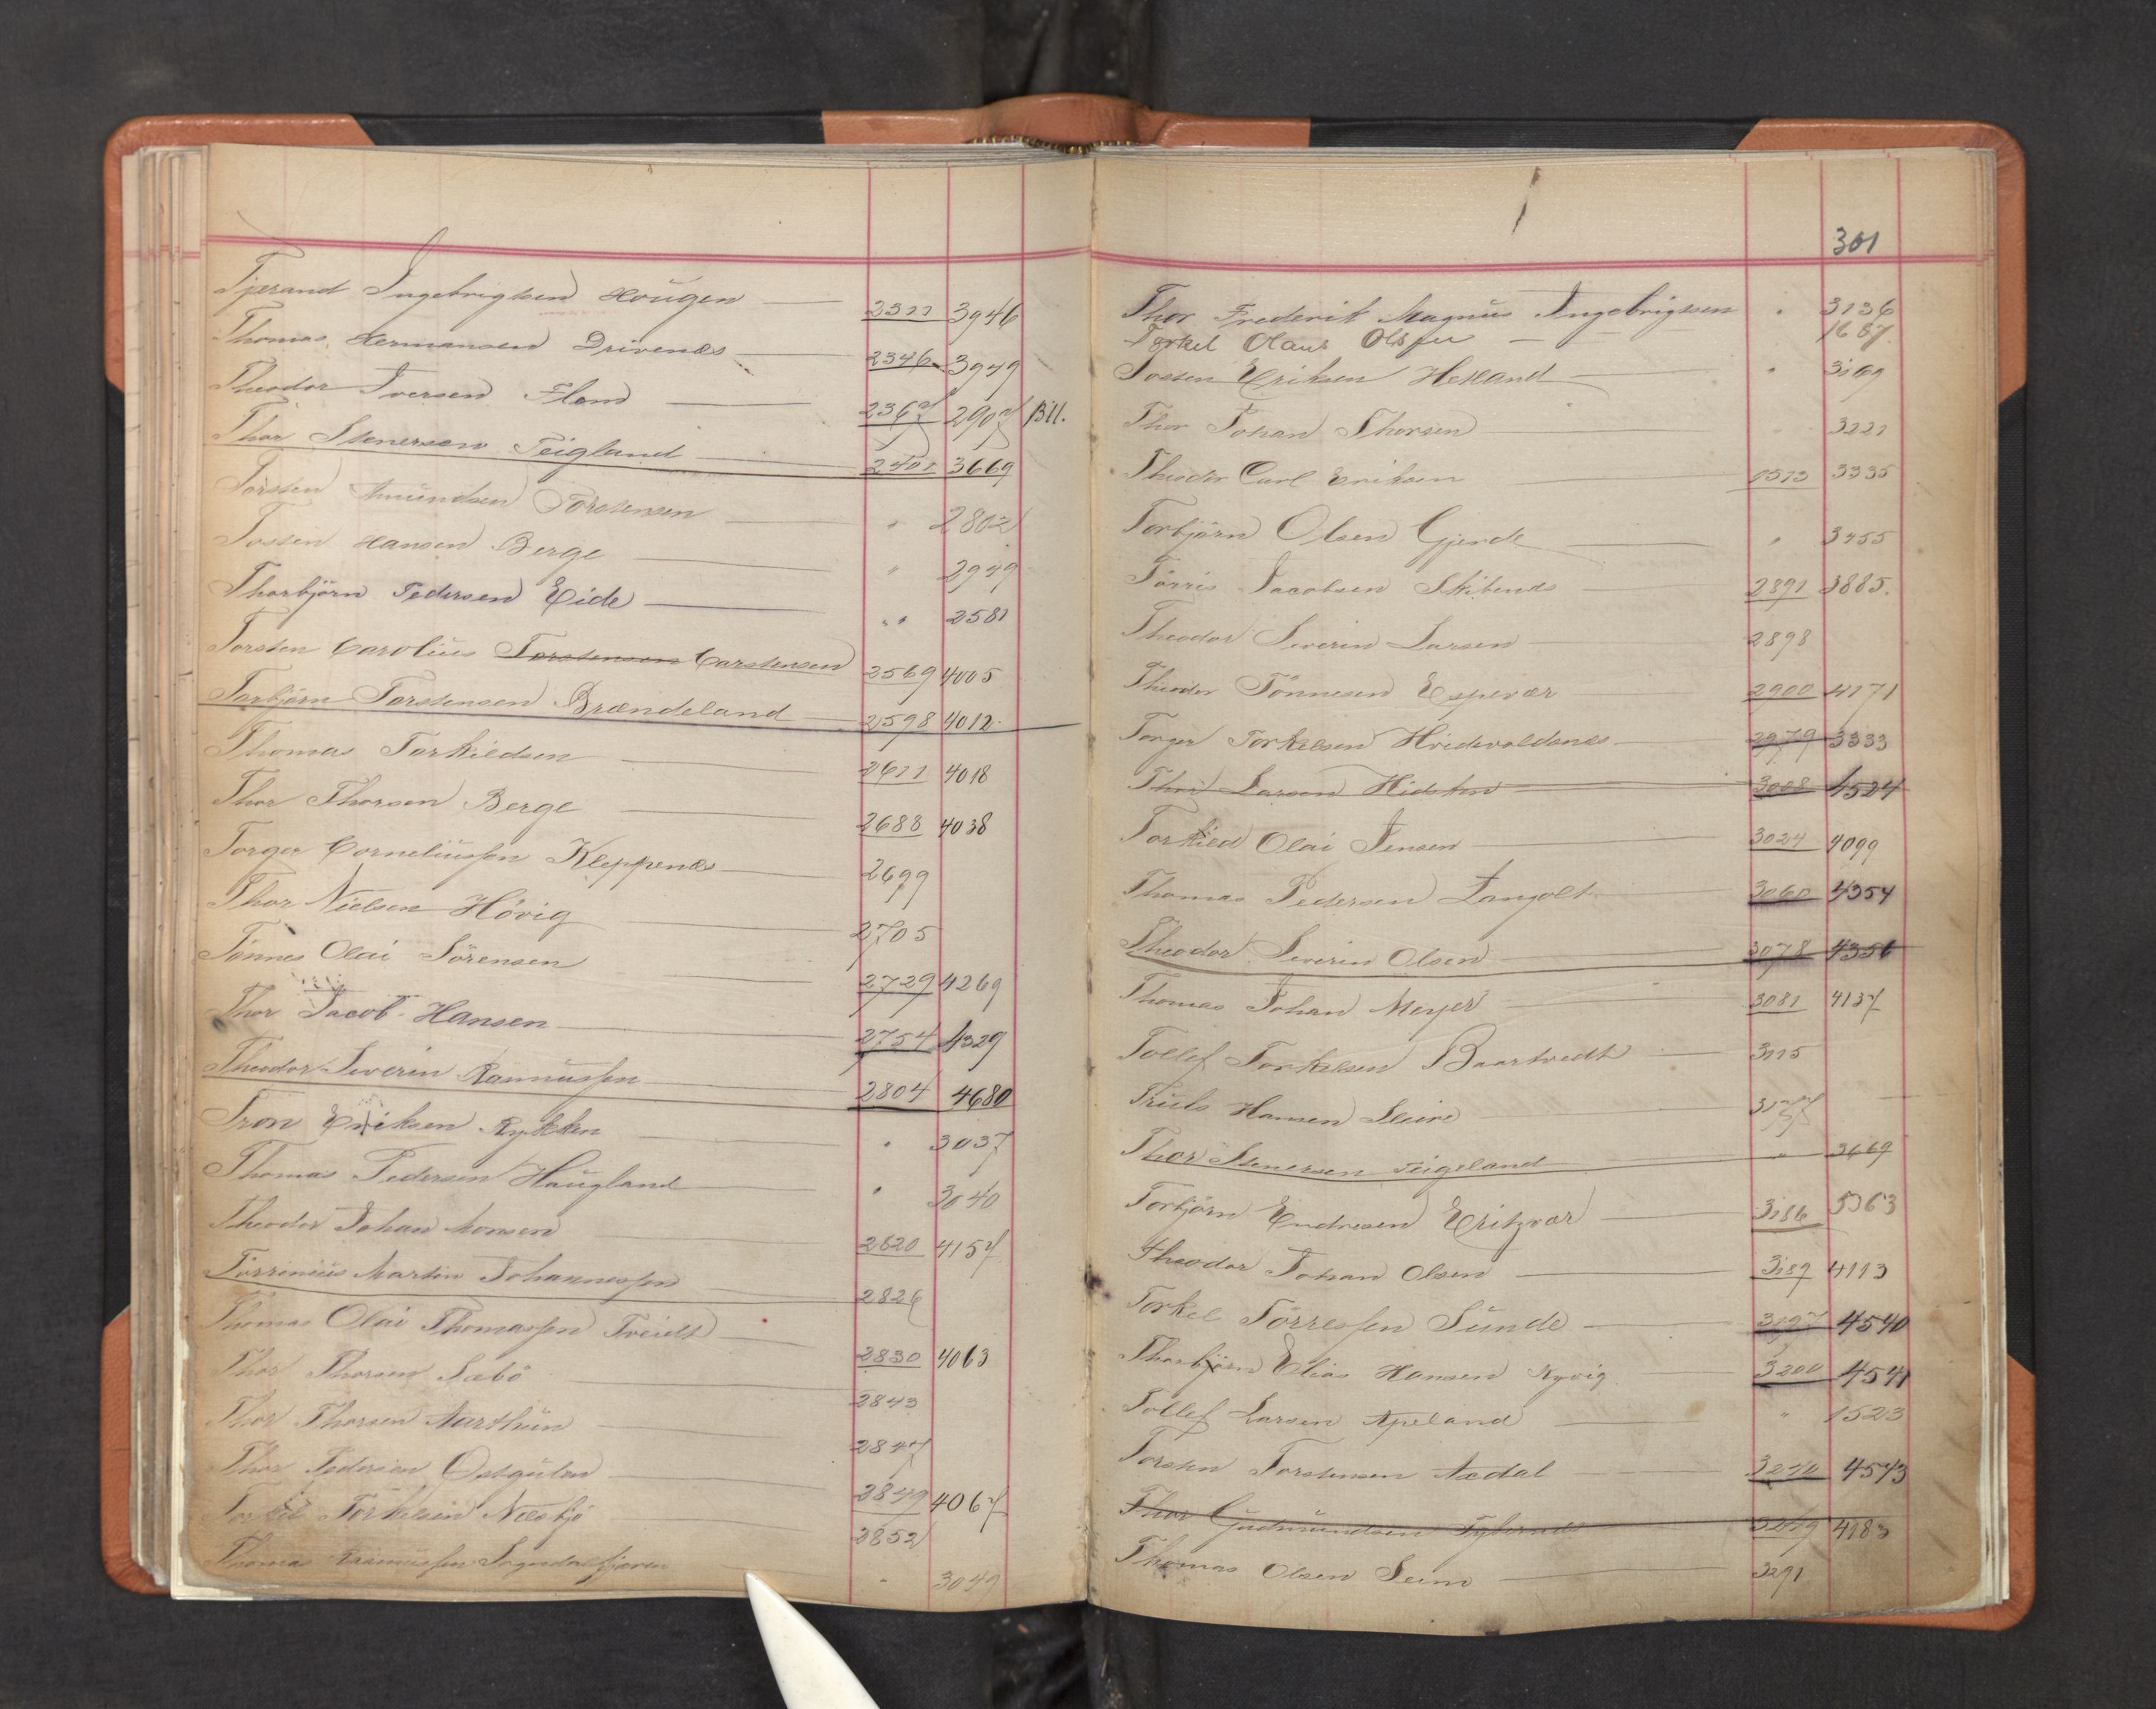 Tjerand Ingebrigtsen Hougen 2311 3946
Thomas Hermansen Drivenes 2346 3949
Theodor Iversen Flom 2367 2907 Bll.
Thor Stenersen Teigland 2401 3669
Torsten Amundsen Torstensen " 2802
Tosten Hansen Berge " 2949
Thorbjörn Pedersen Eide " " 2581
Torsten Carolius Torstensen Carstensen 2569 4005
Torbjörn Torstensen Brændeland 2598 4012
Thomas Torkildsen 2611 4018
Thor Thorsen Berge 2688 4038
Torger Corneliussen Kleppenes 2699
Thor Nielsen Hövig 2705
Tönnes Olai Sörensen 2729 4269
Thor Jacob Hansen 2754 4329
Theodor Severin Rasmussen 2804 4680
Tron Eriksen Rykken " 3037
Thomas Pedersen Haugland " 3040
Theodor Johan Monsen 2820 4157
Törrinius Martin Johannessen 2826
Thomas Olai Thomassen Tveidt 2830 4063
Thor Thorsen Sæbö 2843
Thor Thorsen Aarthun 2847
Thor Pedersen Østgulen 2849 4067
Torkel Torkelsen Næsbjö 2852
Thomas Rasmussen Sogndalsfjæren " 3049
301
Thor Frederik Magnus Ingebrigtsen " 3136
Torkel Olaus Olsen 1687
Tosten Eriksen Hetland " 3169
Thor Johan Thorsen " 3221
Theodor Carl Eriksen 1513 3335
Torbjörn Olsen Gjerde " 3455
Törris Jacobsen Skibenes 2891 3885.
Theodor Severin Larsen 2898
Theodor Tönnesen Espevær 2900 4171
Torger Torkelsen Hvidevoldsnes 2979 3333
Thor Larsen Hidsten 3008 4524
Torkild Olai Jensen 3024 4099
Thomas Pedersen Langolt 3060 4354
Theodor Severin Olsen 3078 4356
Thomas Johan Meyer 3081 4137
Tollef Torkelsen Baartvedt 3115
Truls Hansen Sleire
Thor Stenersen Teigeland " 3669
Torbjörn Endresen Eritzvær 3186 5363
Theodor Johan Olsen 3189 4113
Torkel Törressen Sunde 3197 4540
Thorbjörn Elias Hansen Ryvig 3200 4541
Tollef Larsen Apeland " 1523
Torsten Torstensen Aadal 3240 4543
Thor Gudmundsen 4183
Thomas Olsen Seim 3291